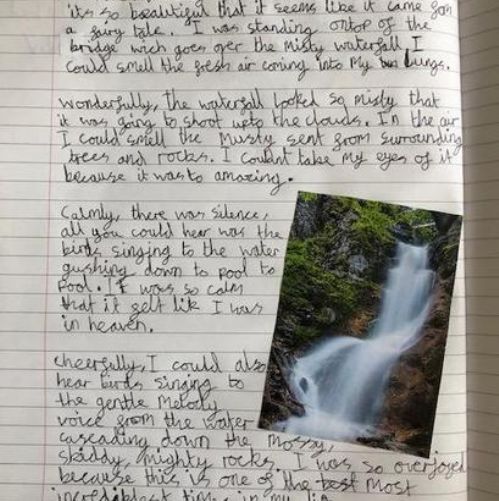 it's so beautiful that it seems like it came from
a fairy tale. I was standing ontop of the
bridge wich goes over the misty waterfall, I
could smell the fresh air coming into my lungs.
Wonderfully, the waterfall looked so misty that
it was going to shoot upto the clouds. In the air
I could smell the musty sent from surrounding
trees and rocks. I couldnt take my eyes of it
because it was to amazing.
Calmly, there was silence,
all you could hear was the
birds singing to the water
gushing down to pool to
pool. It was so calm
that it felt lik I was
in heaven.
Cheerfully, I could also
hear birds singing to
the gentle melody
voice from the water
cascading down the mossy,
skiddy, mighty rocks. I was so overjoyed
because this is one of the best most
incrediblest time in my